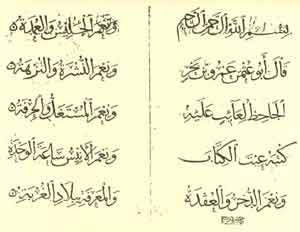 بسم الله الرحمن الرحيم
قال أبو عثمن عمرو بن بحر
الجاحظ العايب عليه
كتبه عبت الكتاب
ونعم الذخر والعقدة
ونعم الجليس والعدة
ونعم النشرة والنزهة
ونعم المشتغل والحرفة
ونعم الانيس ساعة الوحدة
والمعرفة ببلاد الغربة